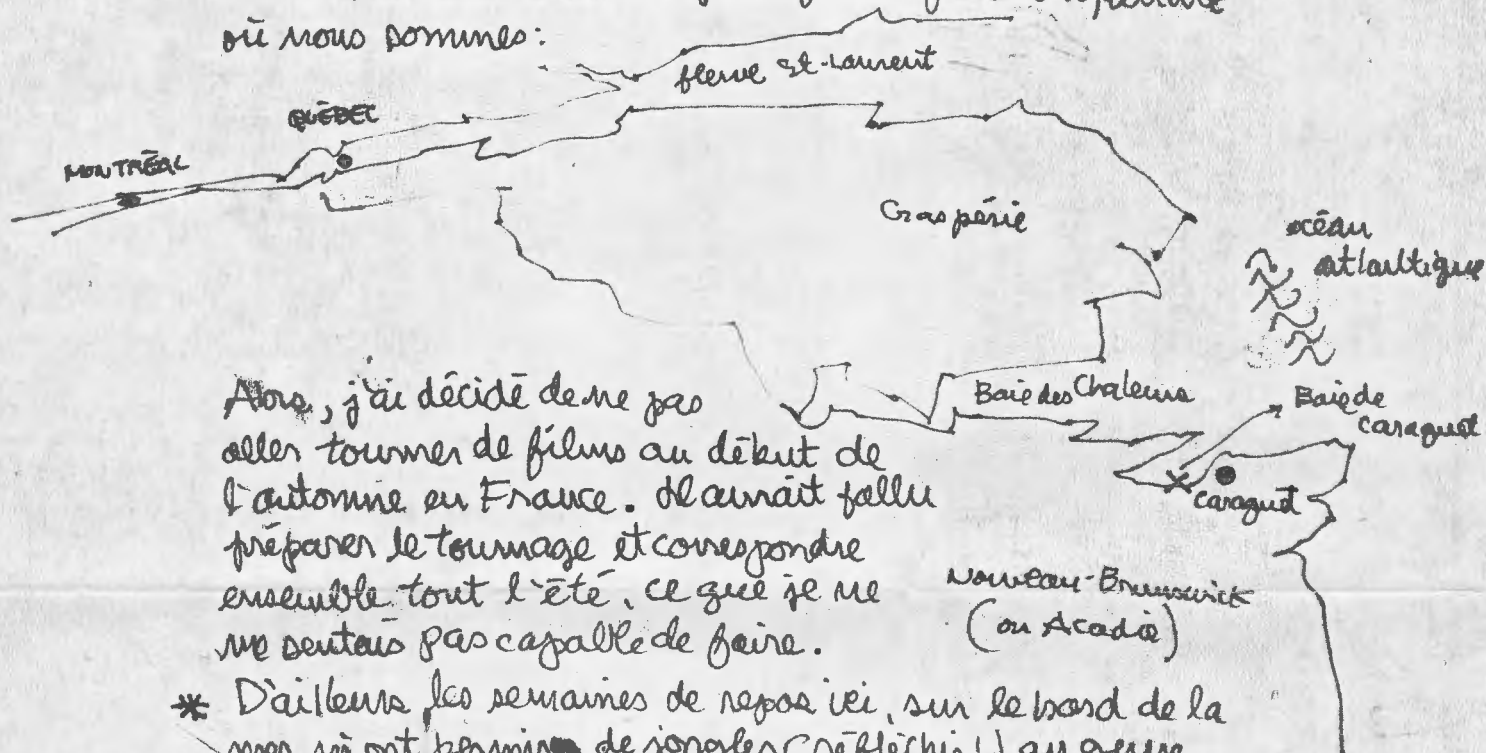 où nous sommes:
fleuve St-Laurent
QUÉBEC
MONTRÉAL
Gaspésie
océan
atlantique
Baie des Chaleurs
Baie de
caraquet
caraquet
Nouveau-Brunswick
(ou Acadie)
Alors, j'ai décidé de ne pas
aller tourner de films au début de
l'automne en France. Il aurait fallu
préparer le tournage et correspondre
ensemble tout l'été, ce que je ne
me sentais pas capable de faire.
* D'ailleurs les semaines de repos ici, sur le bord de la
mer m'ont permis de jongler (réfléchir!) au genre